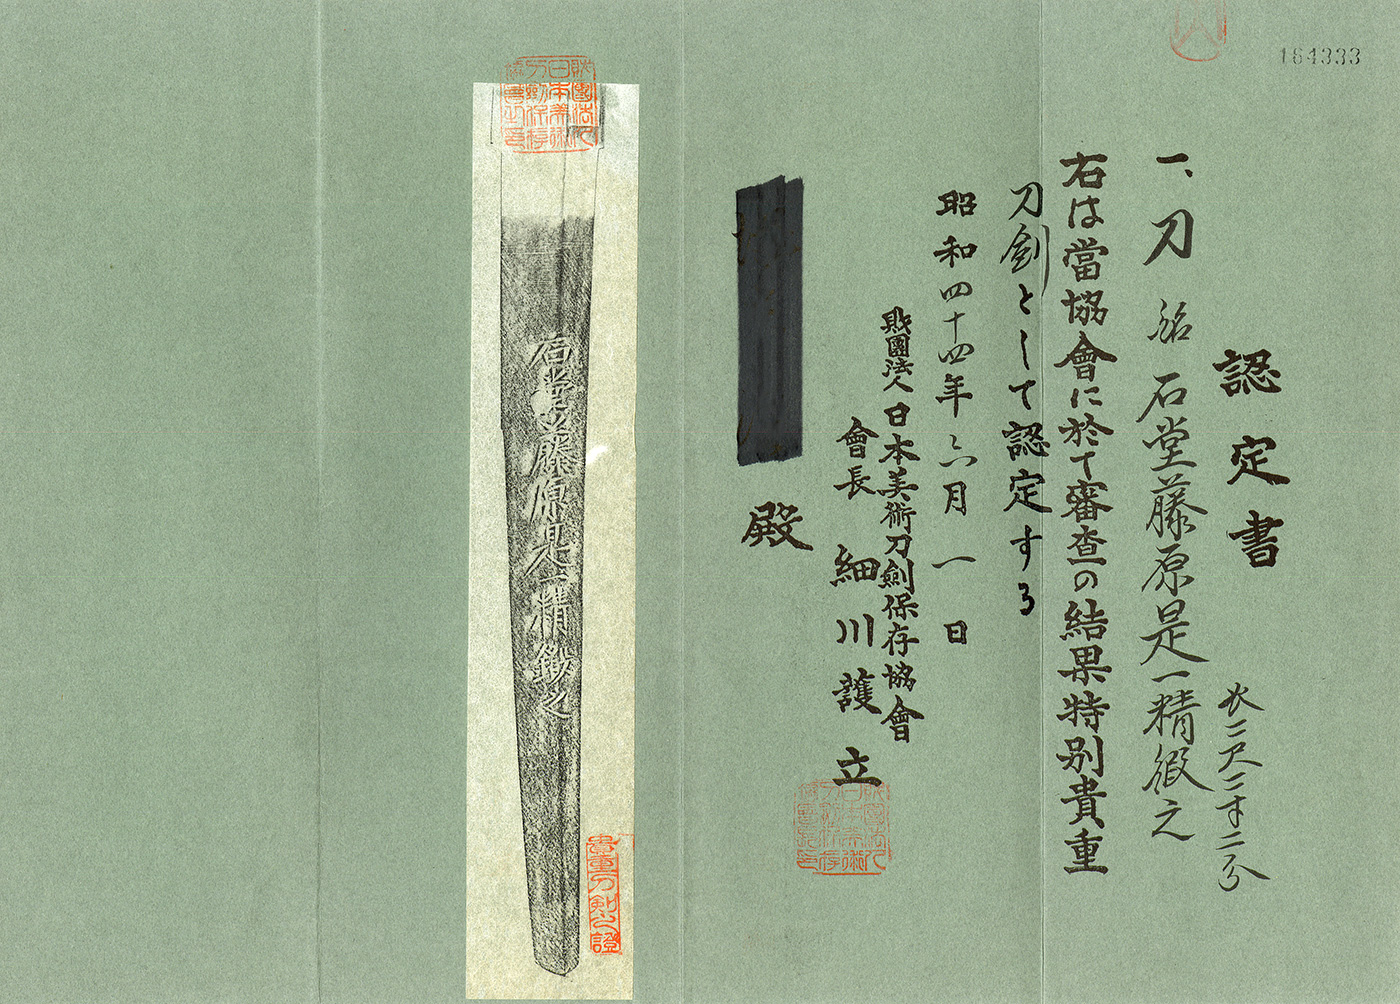 164333
認定書
一、刀 銘 石堂藤原是一精鍛之
長二尺二寸二分
右は當協會に於て審査の結果特別貴重
刀劍として認定する
昭和四十四年六月一日
財團法人日本美術刀劍保存協會
會長 細川護立
殿
石堂藤原是一精鍛之
貴重刀剣之證